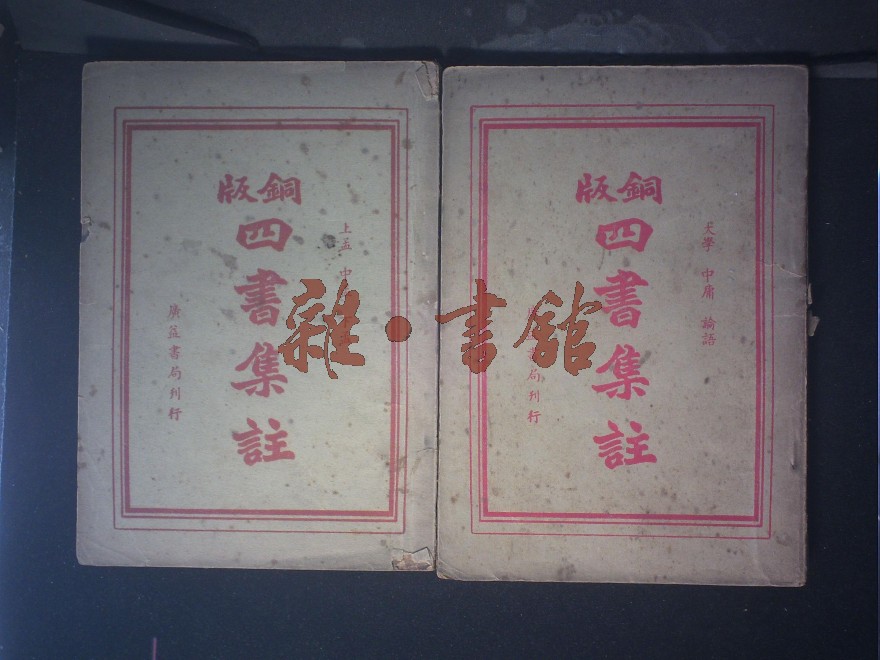 銅版
四書集註
上孟 中
廣益書局刊行
銅版
四書集註
大學 中庸 論語
局刊行
雜·書館